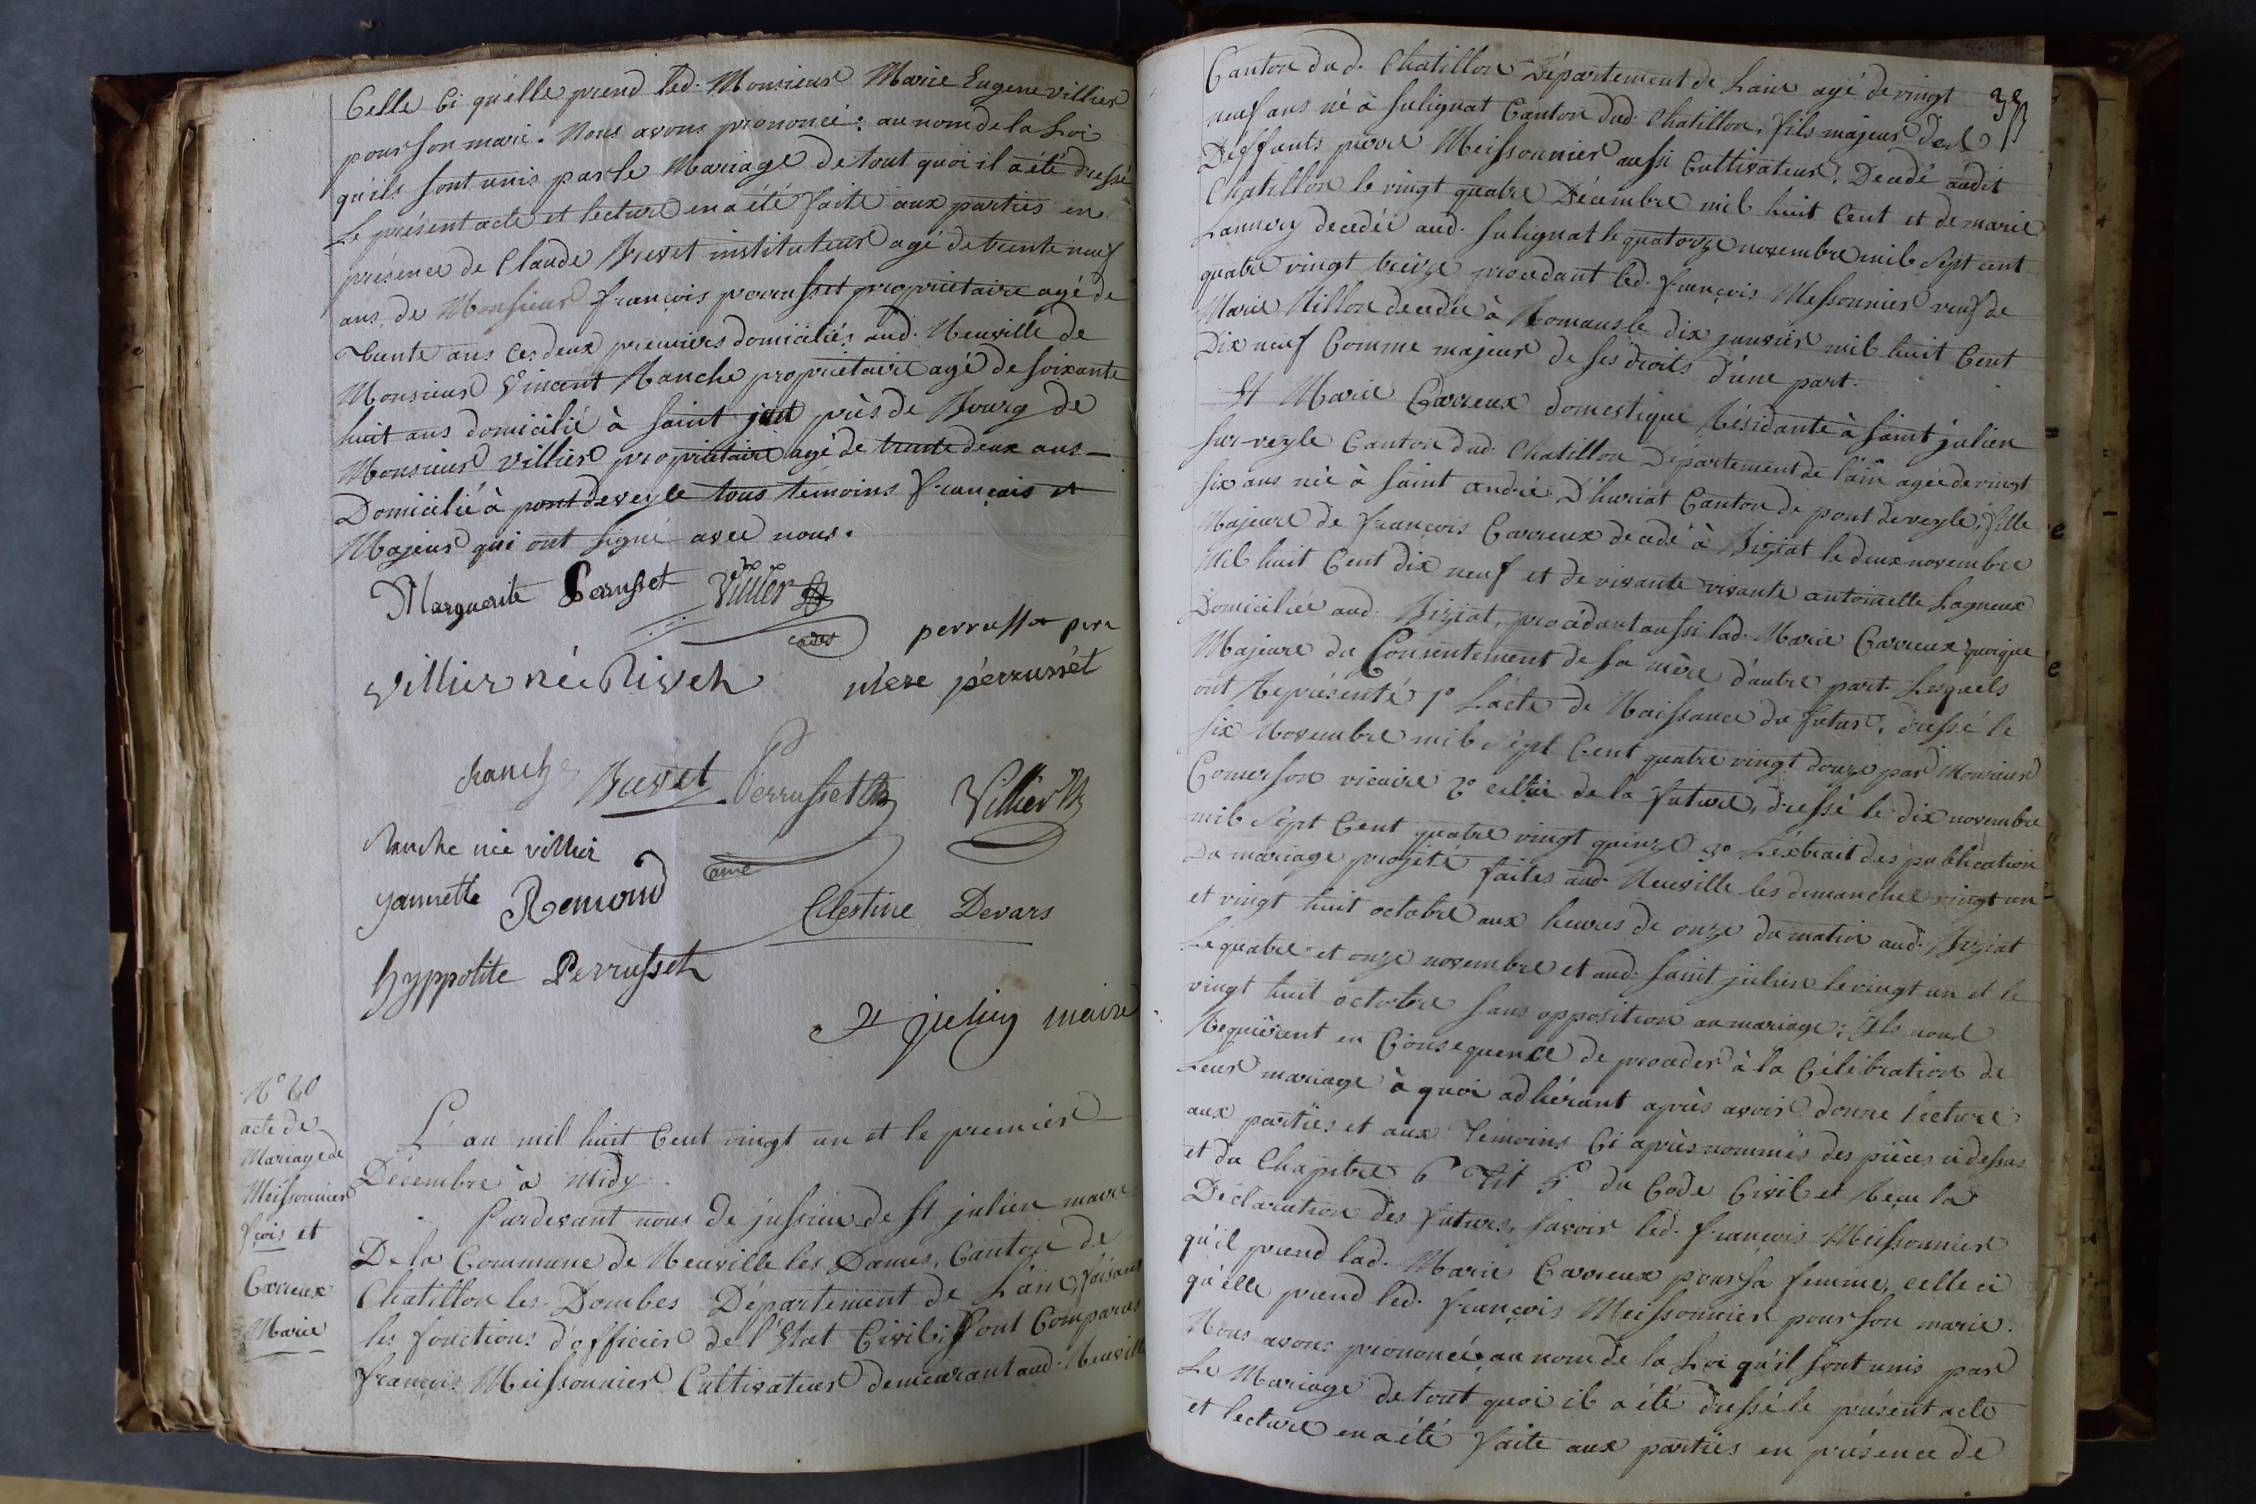 Celle Ci qu'elle prend led. Monsieur Marie Eugene villier
pour son mari. Nous avons prononcé: au nom de la Loi
qu'ils sont unis par le Mariage de tout quoi il a été dressé
Le présent acte et lecture en a été faite aux parties en
présence de Claude Buvet instituteur agé de trente neuf
ans, de Monsieur françois perrusset propriétaire agé de
trente ans Ces deux premiers domiciliés aud. Neuville de
Monsieur Vincent Ranche propriétaire agé de soixante
huit ans domicilié à saint just près de Bourg de
Monsieur Villier propriétaire agé de trente deux ans
Domicilié à pontdeveyle tous témoins français et
Majeurs qui ont signé avec nous.
Marguerite Perrusset Villier
cadet perrusset pere
Villier née Niveh mere pérrussét
Ranche Buvet Perrusset Villier
Ranche née villier
ainé
Jannette Remond Celestine Devars
hyppolite Perrusset
St julien maire
N° 20
acte de
Mariage de
Meissonnier
fçois et
Carreux
Marie
L'an mil huit Cent vingt un et le premier
Décembre à Midy
Pardevant nous De jussieu de St julien maire
De la Commune de Neuville les Dames, Canton de
Chatillon les Dombes Département de L'ain, faisant
les fonctions d'officier de l'Etat Civil; Sont Comparus
François Meissonnier Cultivateur demeurant aud. Neuville
Canton dud. Chatillon Département de Lain agé de vingt
neuf ans né à Sulignat Canton dud. Chatillon, fils majeur des
Deffunts pierre Meissonnier aussi Cultivateur, Décédé audit
Chatillon le vingt quatre Décembre mil huit Cent et de marie
Lannery decedée aud. Sulignat le quatorze novembre mil Sept cent
quatre vingt treize procedant led. françois Messonnier veuf de
Marie Nillon decedée à Romans le dix janvier mil huit Cent
Dix neuf Comme majeur de ses droits d'une part.
Et Marie Carreux domestique Résidante à saint julien
sur-veyle Canton dud. Chatillon Departement de l'ain agée de vingt
six ans née à saint andré D'huriat Canton de pont de veyle, fille
Majeure de françois Carreux decedé à Biziat le deux novembre
Mil huit Cent dix neuf et de vivante vivante antoinette Lagneux
Domiciliée aud. Biziat, procédant aussi lad. Marie Carreux quoique
Majeure du Consentement de sa mère d'autre part. Lesquels
ont Représenté 1° L'acte de Naissance du futur, dressé le
six Novembre mil Sept Cent quatre vingt douze par Monsieur
Comerson vicaire 2° celui de la future, dressé le dix novembre
mil Sept Cent quatre vingt quinze 3° L'extrait des publication
Du mariage projété faites aud. Neuville les dimanches vingt un
et vingt huit octobre aux heures de onze du matin aud. Biziat
Le quatre et onze novembre et aud. saint julien le vingt un et le
vingt huit octobre sans opposition au mariage; Ils nous
Requiérent en Consequence de proceder à la Célébration de
Leur mariage à quoi adhérant après avoir donne lecture
aux parties et aux témoins Ci après nommés des pièces ci dessus
et du Chapitre 6 Tit 5e du Code Civil et Reçu la
Déclaration des futurs, savoir led. françois Meissonnier
qu'il prend lad. Marie Carreux pour sa femme, celle ci
qu'elle prend led. françois Meissonnier pour son mari.
Nous avons prononcé; au nom de la Loi qu'il sont unis par
Le Mariage de tout quoi il a été dressé le présent acte
et lecture en a été faite aux parties en présence de